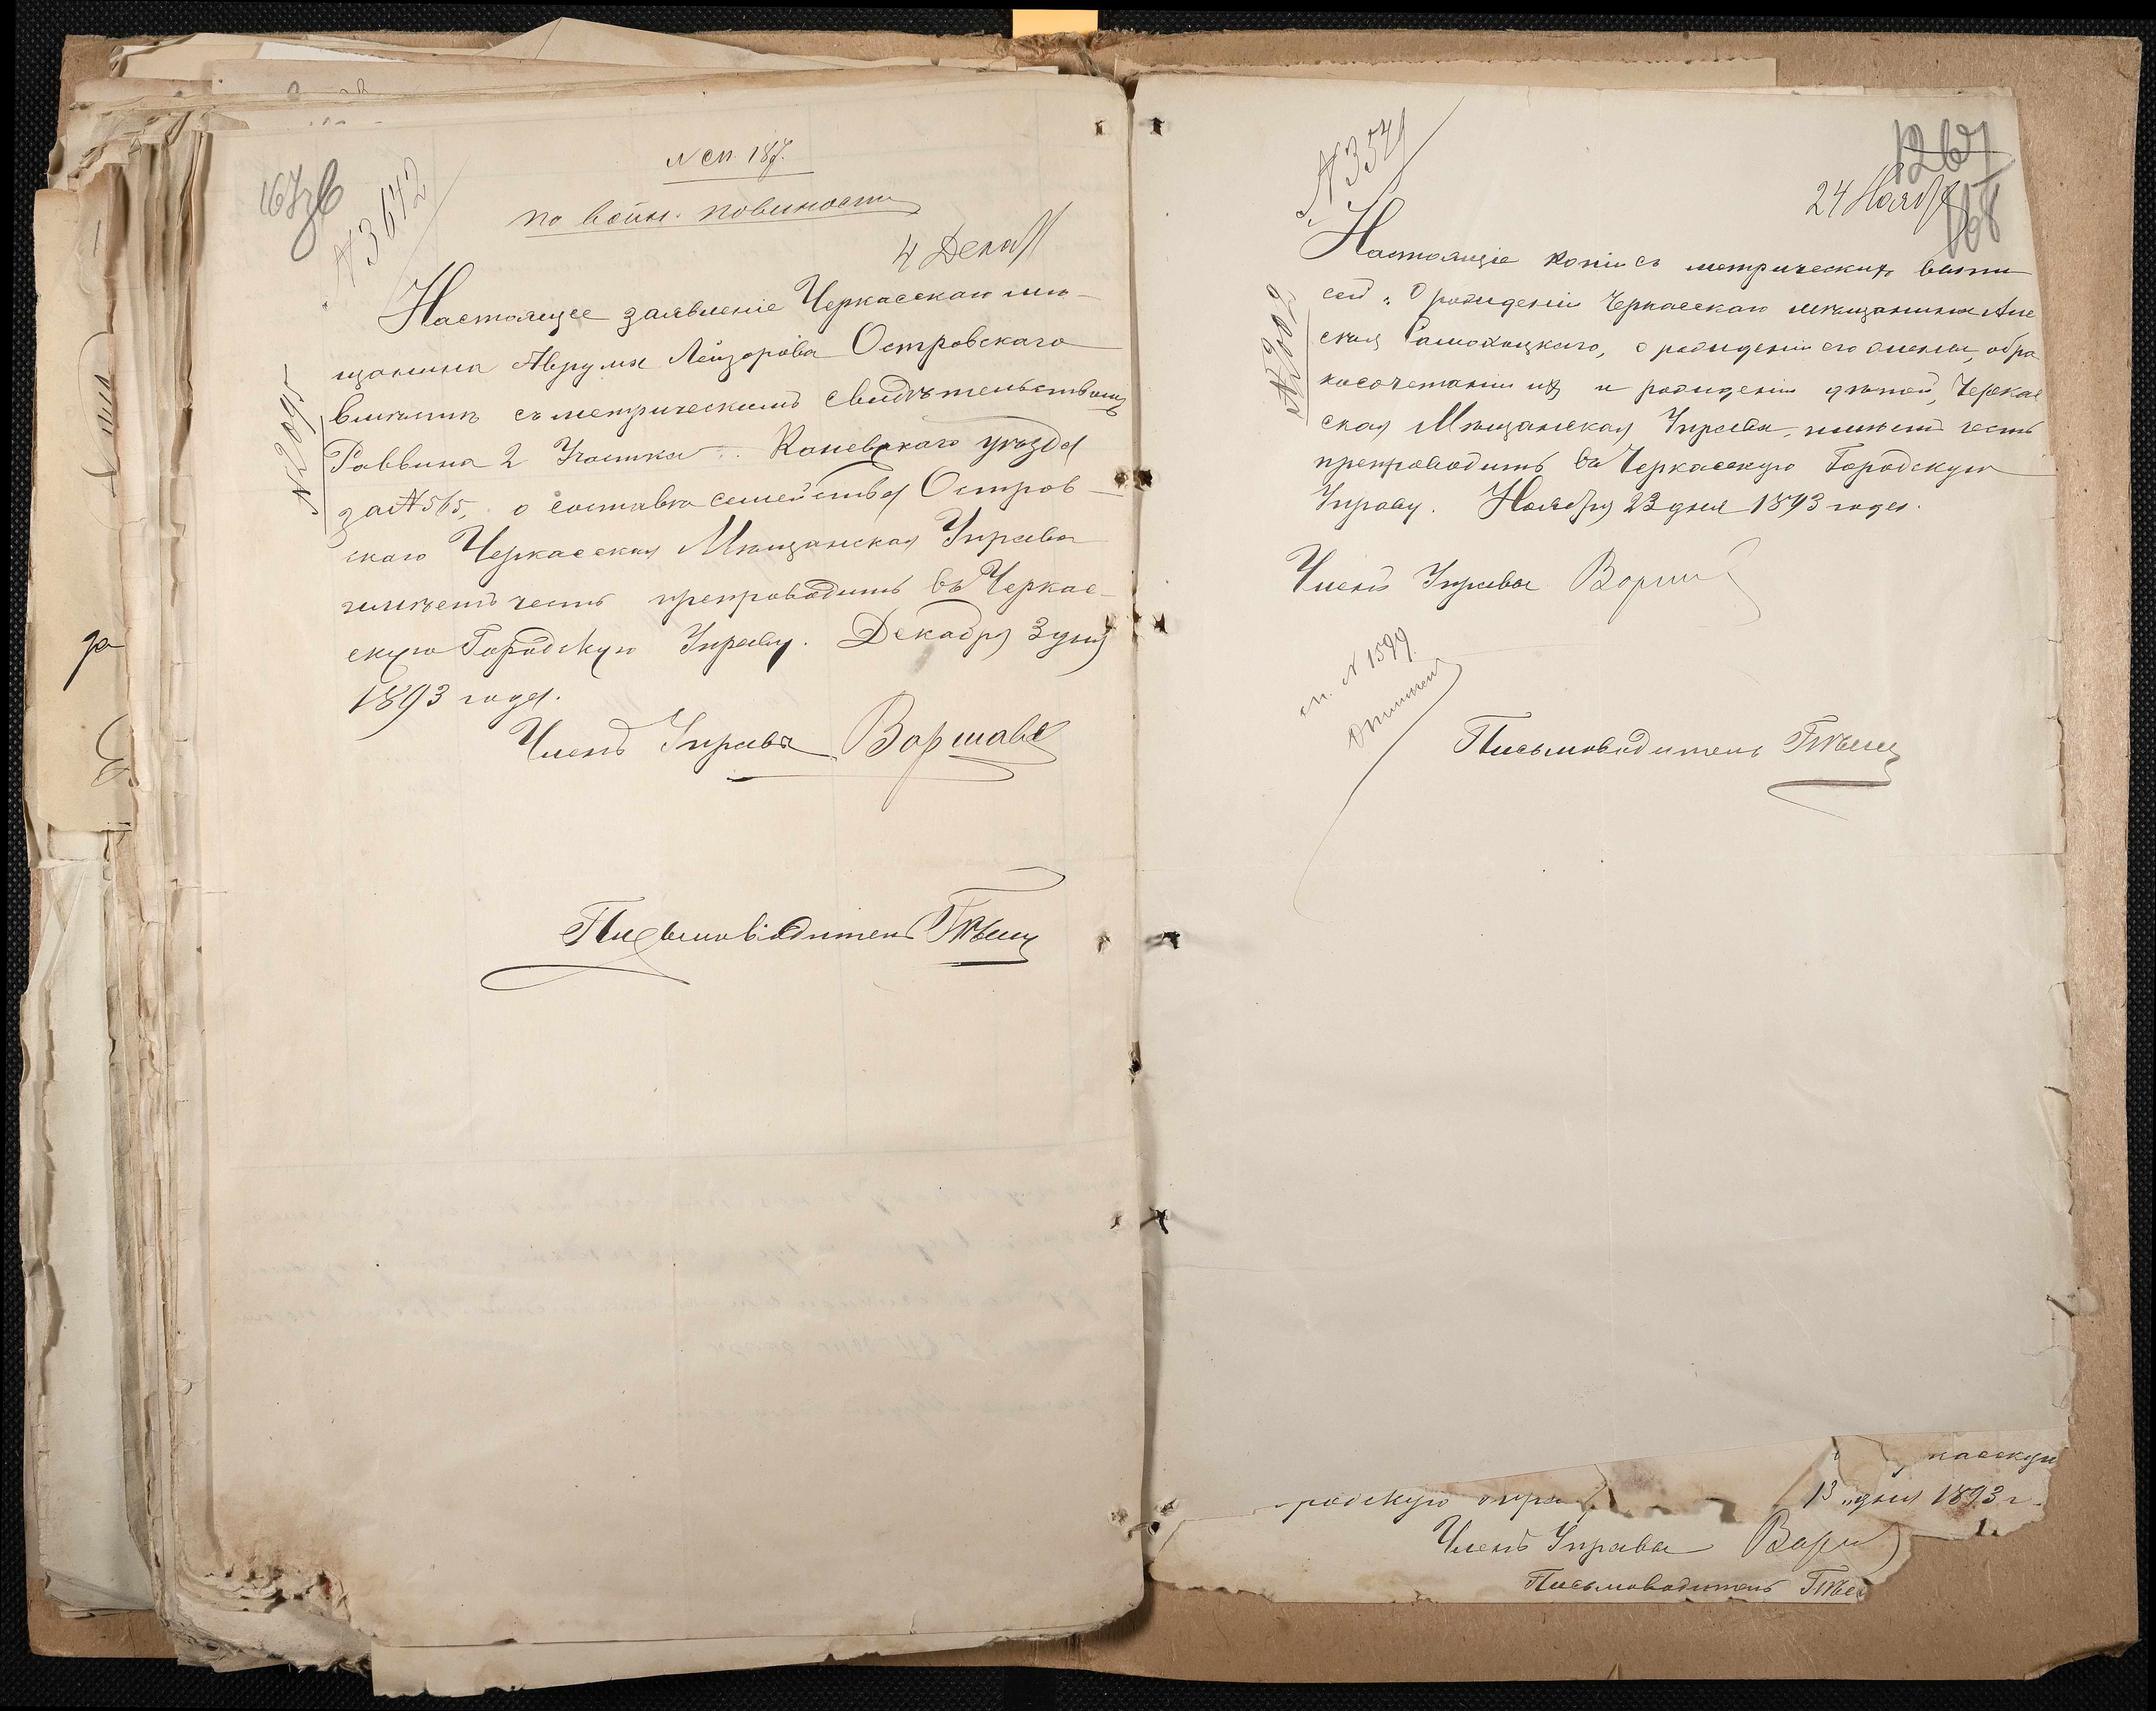 167 об
№ 3642
№ сп. 187.
по воин. повиности
4 Декаб
№ 2095
Настоящее заявленіе Черкасскаго мѣ-
щанина Аврума Лейзорова Островскаго
вмѣстѣ съ метрическимъ свидѣтельствомъ
Раввина 2 Участка Каневскаго уѣзда
за № 565, о составѣ семейства Остров-
скаго Черкасская Мѣщанская Управа
имѣетъ честь препроводить въ Черкас-
скую Городскую Управу. Декабря 3 дня
1893 года.
Членъ Управы Варшавс
Письмоводитель
№ 3541
1267
24 Нояб
168
№ 2002
Настоящіе копіи съ метрическихъ выпи
сей: о рожденіи Черкасскаго мѣщанина
о рожденіи его жены, обра
косочетаніи ихъ и рожденіи дѣтей, Черкас
ская Мѣщанская Управа имѣетъ честь
препроводить въ Черкасскую Городскую
Управу. Ноября 23 дня 1893 года.
Членъ Управы Варш
сп. № 1599
Письмоводитель
касскую
родскую упра 13 „дня 1893 г.
Членъ Управы Варш
Письмоводитель